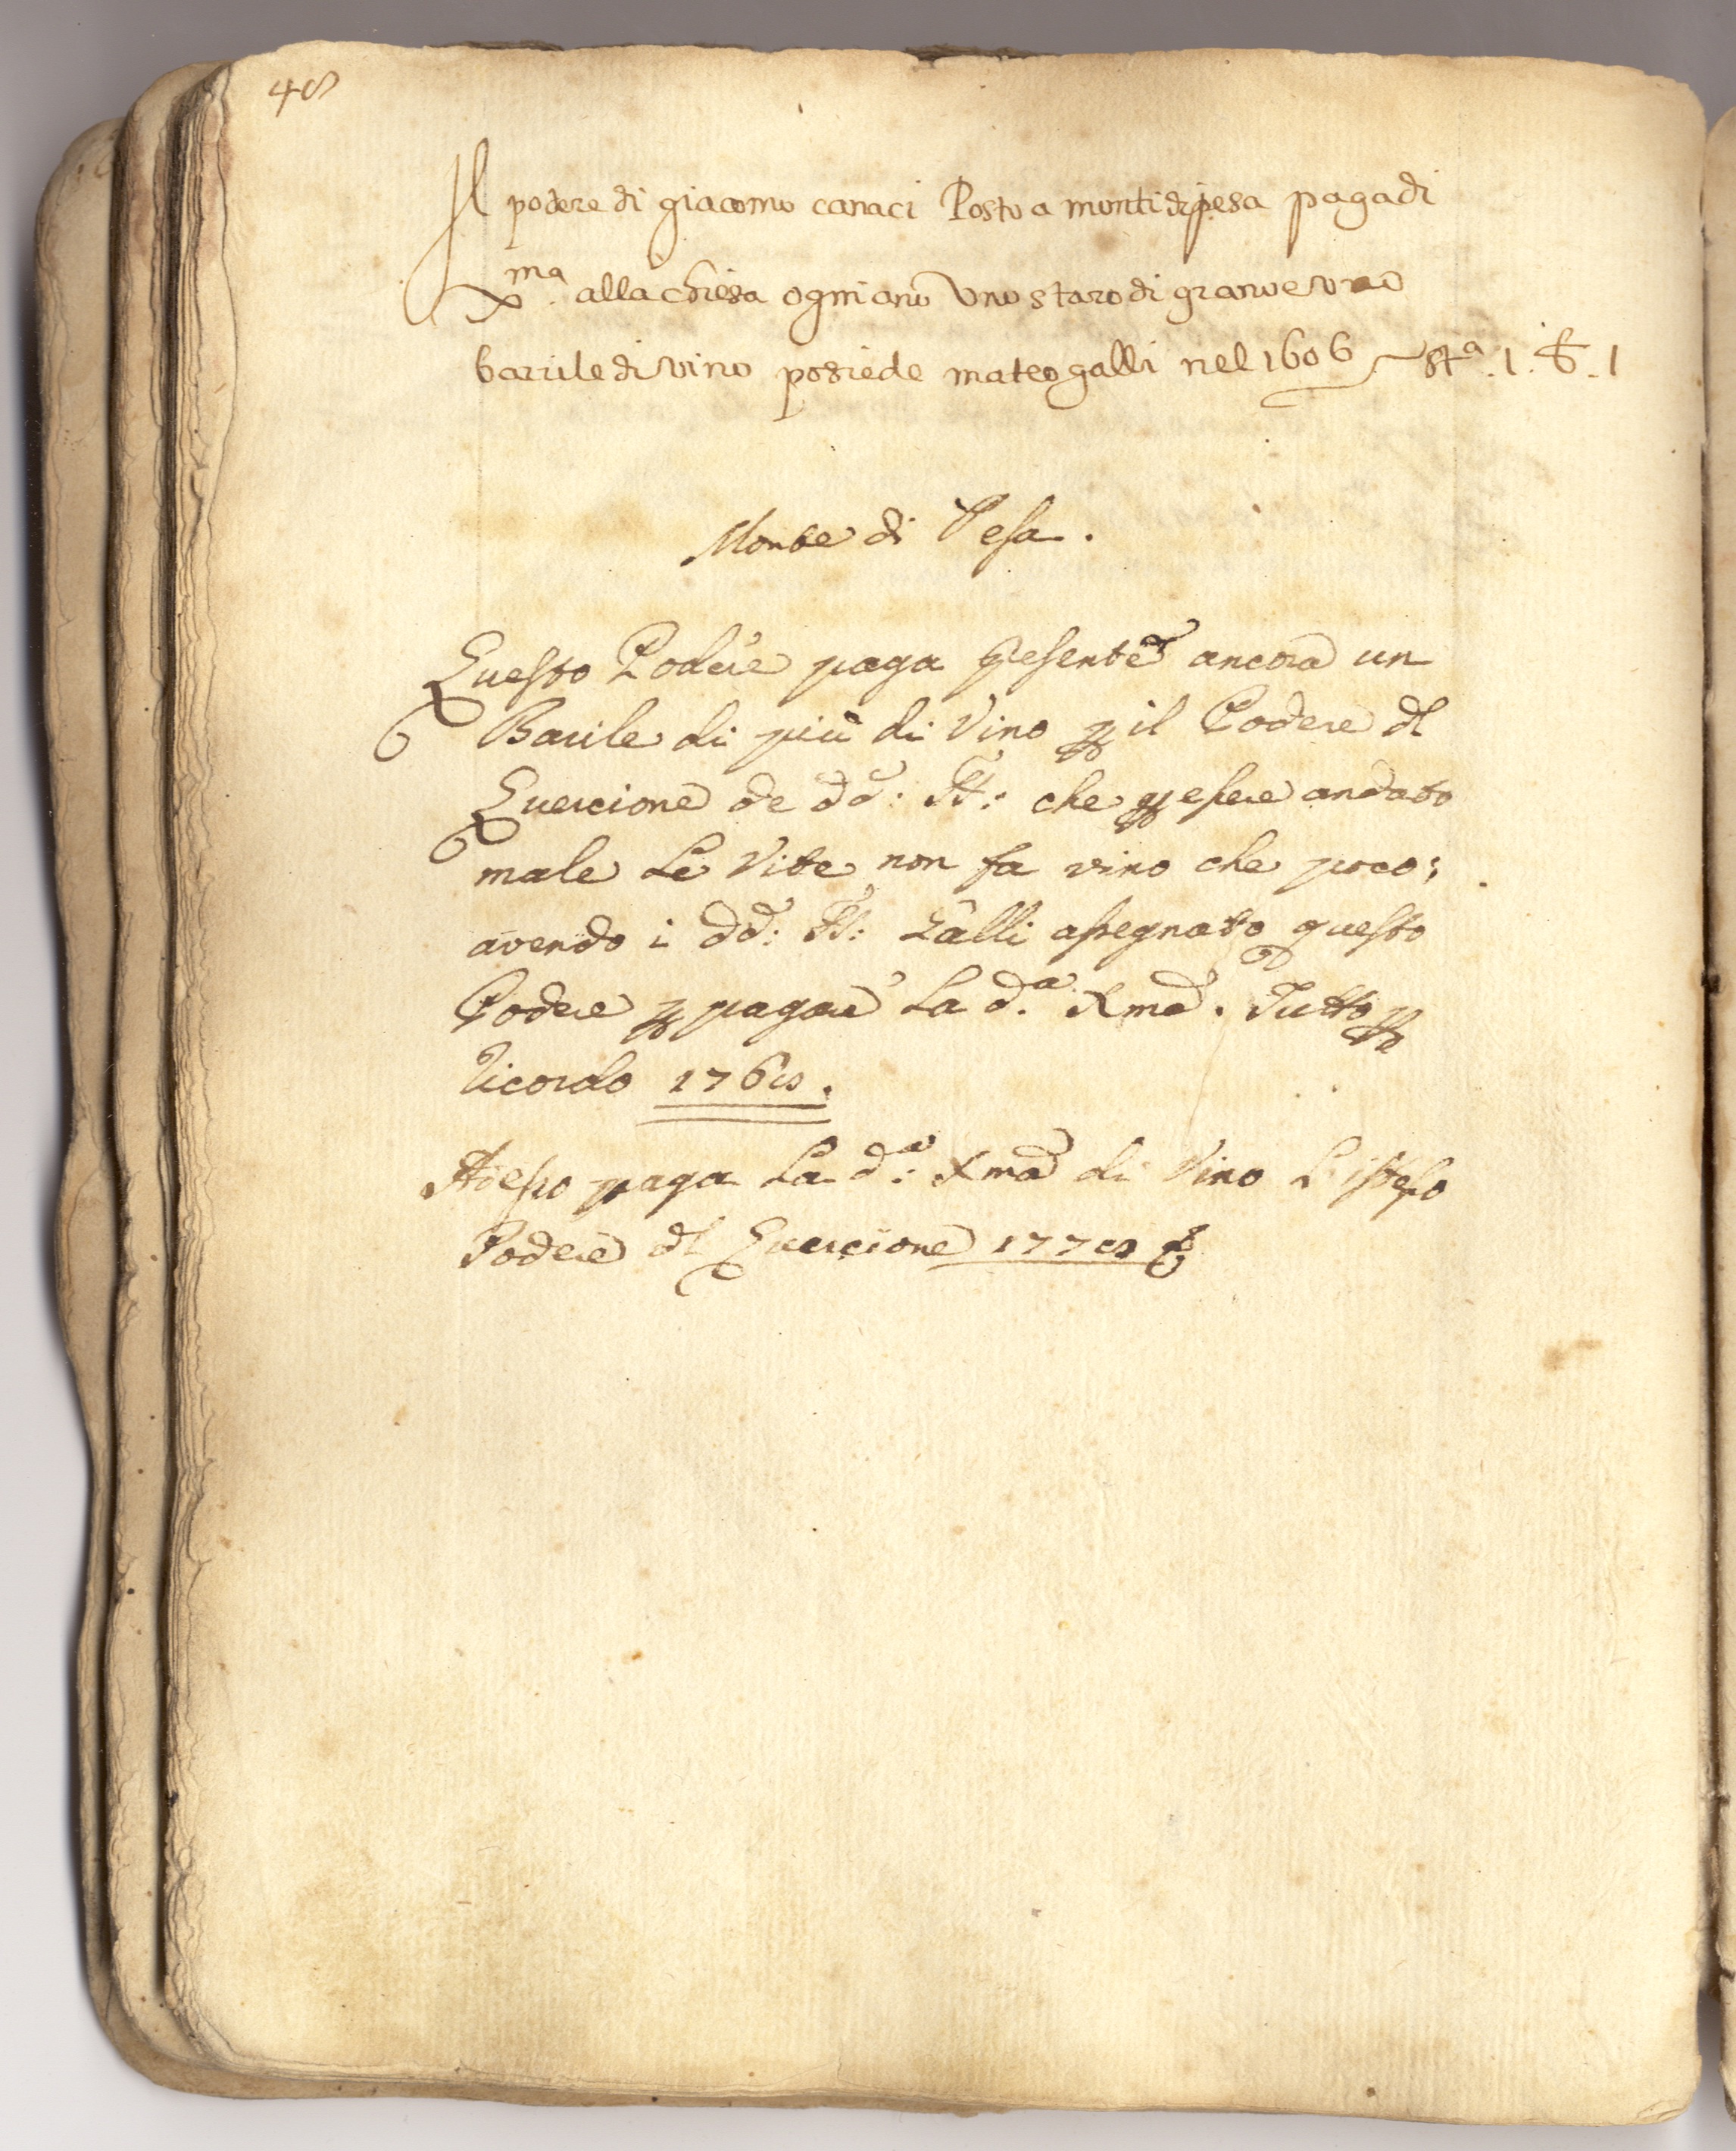 48
Il podere di giacomo canaci Posto a monti di pesa paga di
Xma. alla chiesa ogni anō Uno staro di grano e uno
barile di vino posiede mateo galli nel 1606 sta. 1. b. 1
Monte di Pesa.
Questo Podere paga pŕesente ancora un
Barile di più di Vino p il Podere dl
Quercione de dd: PP: che p esere andato
male Le Vite non fa vino che poco;
avendo i dd: PP: Galli assegnato questo
Podere p pagare La d.a Xma. Tutto p
Ricordo
Adesso paga La d.a: Xma di Vino L'istesso
Podere dl Quercione